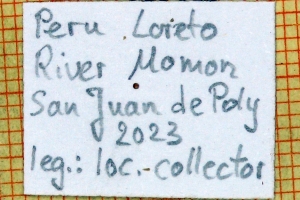 Peru Loreto
River Momon
San Juan de Poly
2023
leg.: loc.-collector